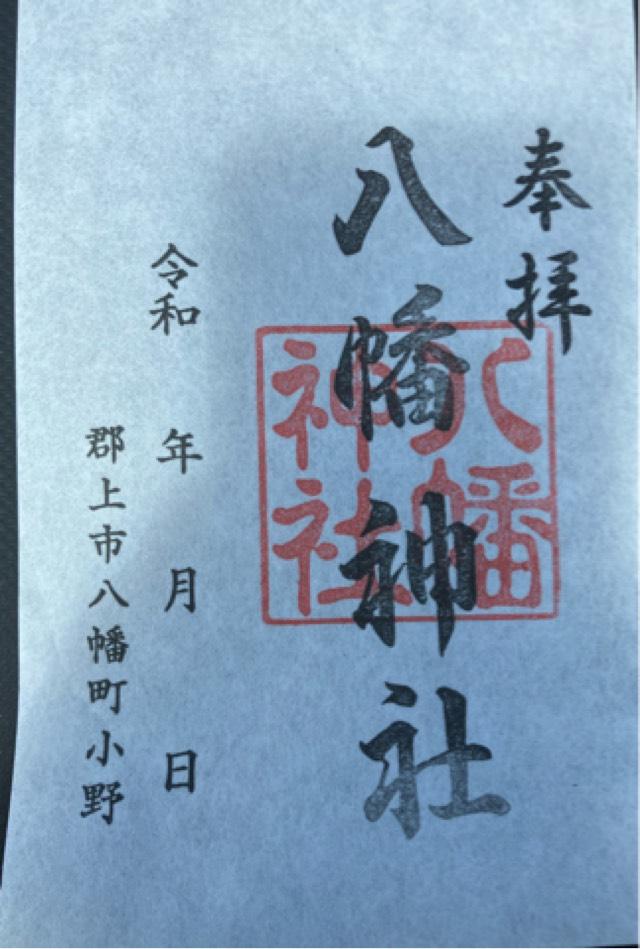 奉拝
八幡神社
八幡
神社
令和 年 月 日
郡上市八幡町小野